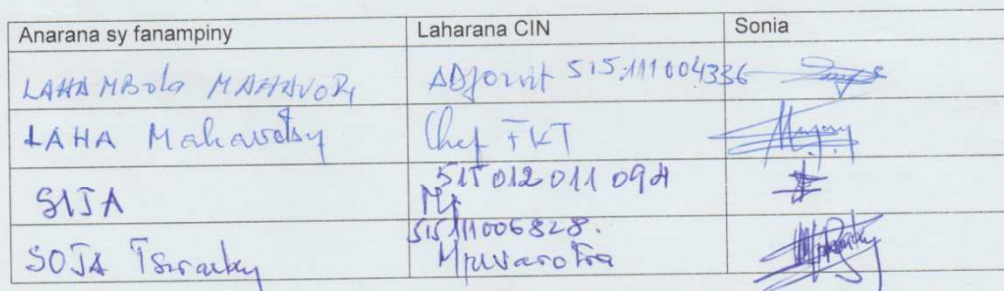 Anarana sy fanampiny Laharana CIN Sonia
LAHAMBola MAHAVORy ADjovit 515 111 004336
LAHA Mahavotsy Chef FKT
SIJA 515 012 011 094
515 111006828.
SOJA Mpivarotra